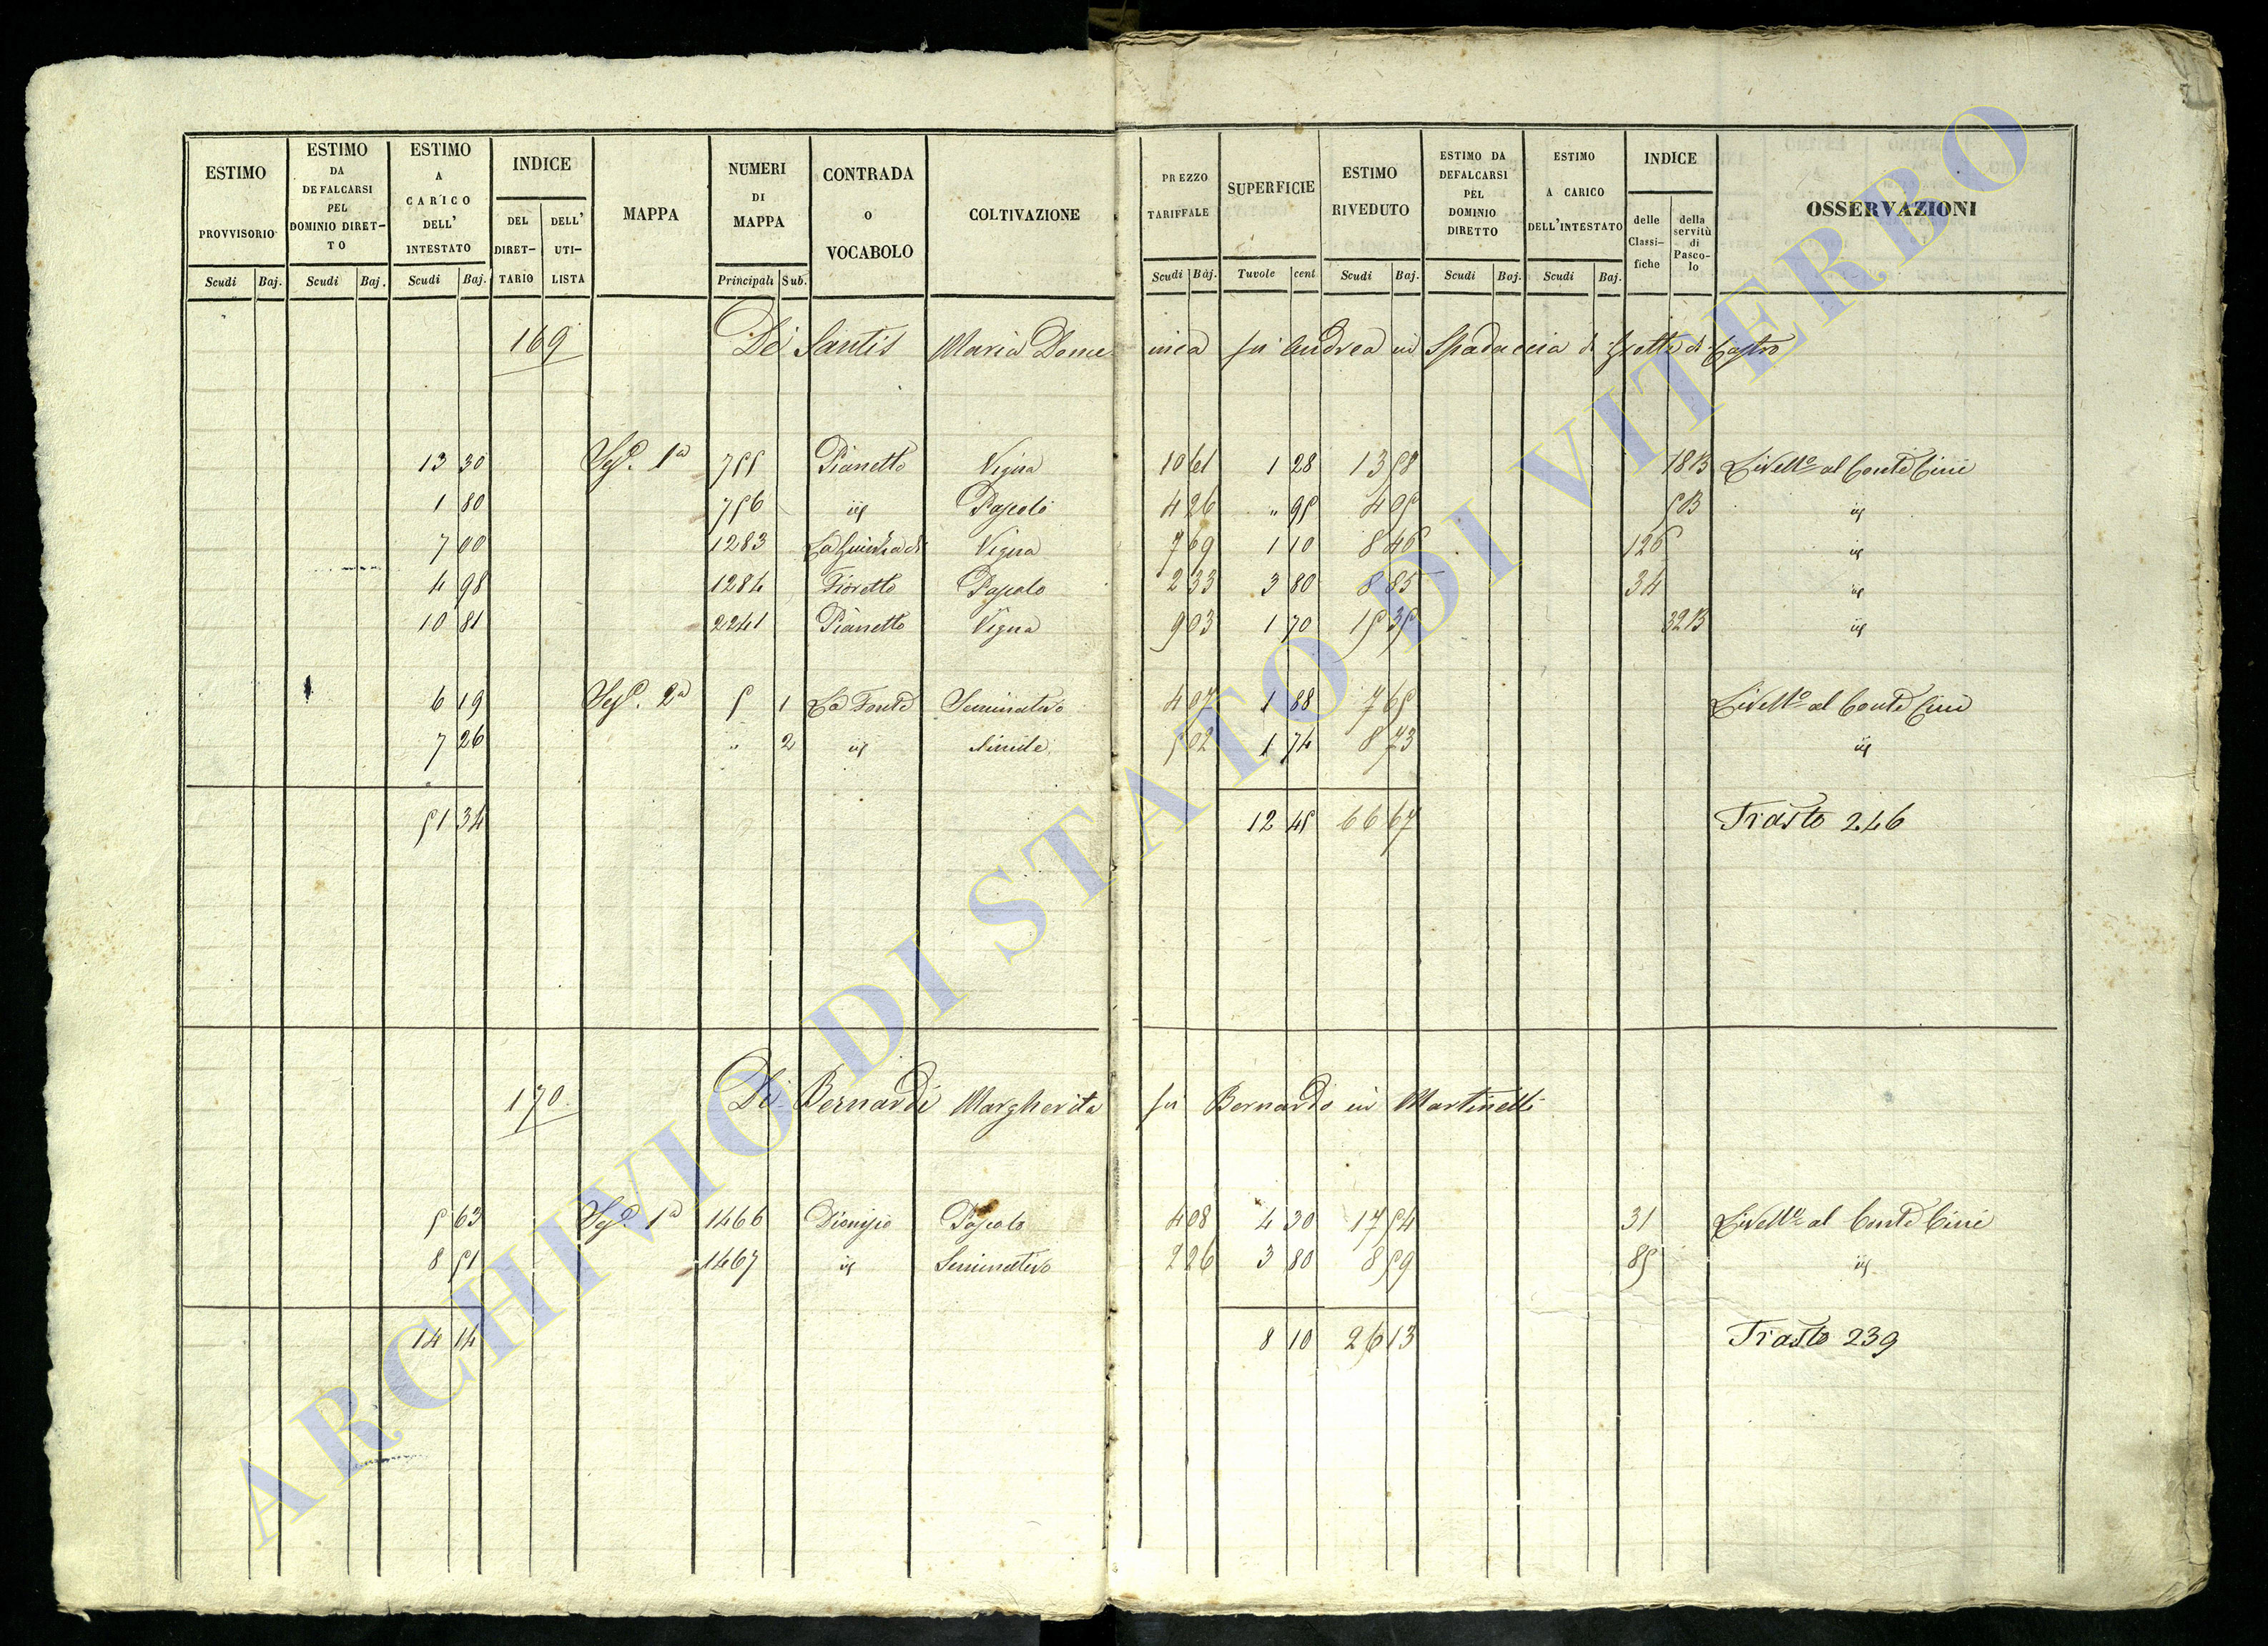 ESTIMO PROVVISORIO Scudi Baj.
ESTIMO DA DEFALCARSI PEL DOMINIO DIRET-TO Scudi Baj.
ESTIMO A CARICO DELL' INTESTATO Scudi Baj.
INDICE DEL DIRET-TARIO DELL' UTI-LISTA
MAPPA
NUMERI DI MAPPA Principali Sub.
CONTRADA O VOCABOLO
COLTIVAZIONE
PREZZO TARIFFALE Scudi Baj.
SUPERFICIE Tavole cent
ESTIMO RIVEDUTO Scudi Baj.
ESTIMO DA DEFALCARSI PEL DOMINIO DIRETTO Scudi Baj.
ESTIMO A CARICO DELL'INTESTATO Scudi Baj.
INDICE delle Classi-fiche della servitù di Pasco-lo
OSSERVAZIONI
169 De Santis Maria Domenica fu Andrea in Spadaccia di Grotte di Castro
13 30 Sez.e 1a 755 Pianetto Vigna 10 61 1 28 13 58 18B Livello al Conte Cini
1 80 756 id Pascolo 4 26 " 95 4 05 5B id
7 00 1283 Vigna 7 69 1 10 8 46 126 id
4 98 1284 Fioretto Pascolo 2 33 3 80 8 85 34 id
10 81 2241 Pianetto Vigna 9 03 1 70 15 35 32B id
6 19 Sez.e 2a 5 1 La Fonte Seminativo 4 07 1 88 7 65 Livello al Conte Cini
7 26 " 2 id Simile 5 02 1 74 8 73 id
51 34 12 45 66 67 Trasto 246
170 De Bernardi Margherita fu Bernardo in Martinelli
5 63 Sez.e 1a 1466 Dionisio Pascolo 4 08 4 30 17 54 31 Livello al Conte Cini
8 51 1467 id Seminativo 2 26 3 80 8 59 85 id
14 14 8 10 26 13 Trasto 239
ARCHIVIO DI STATO DI VITERBO